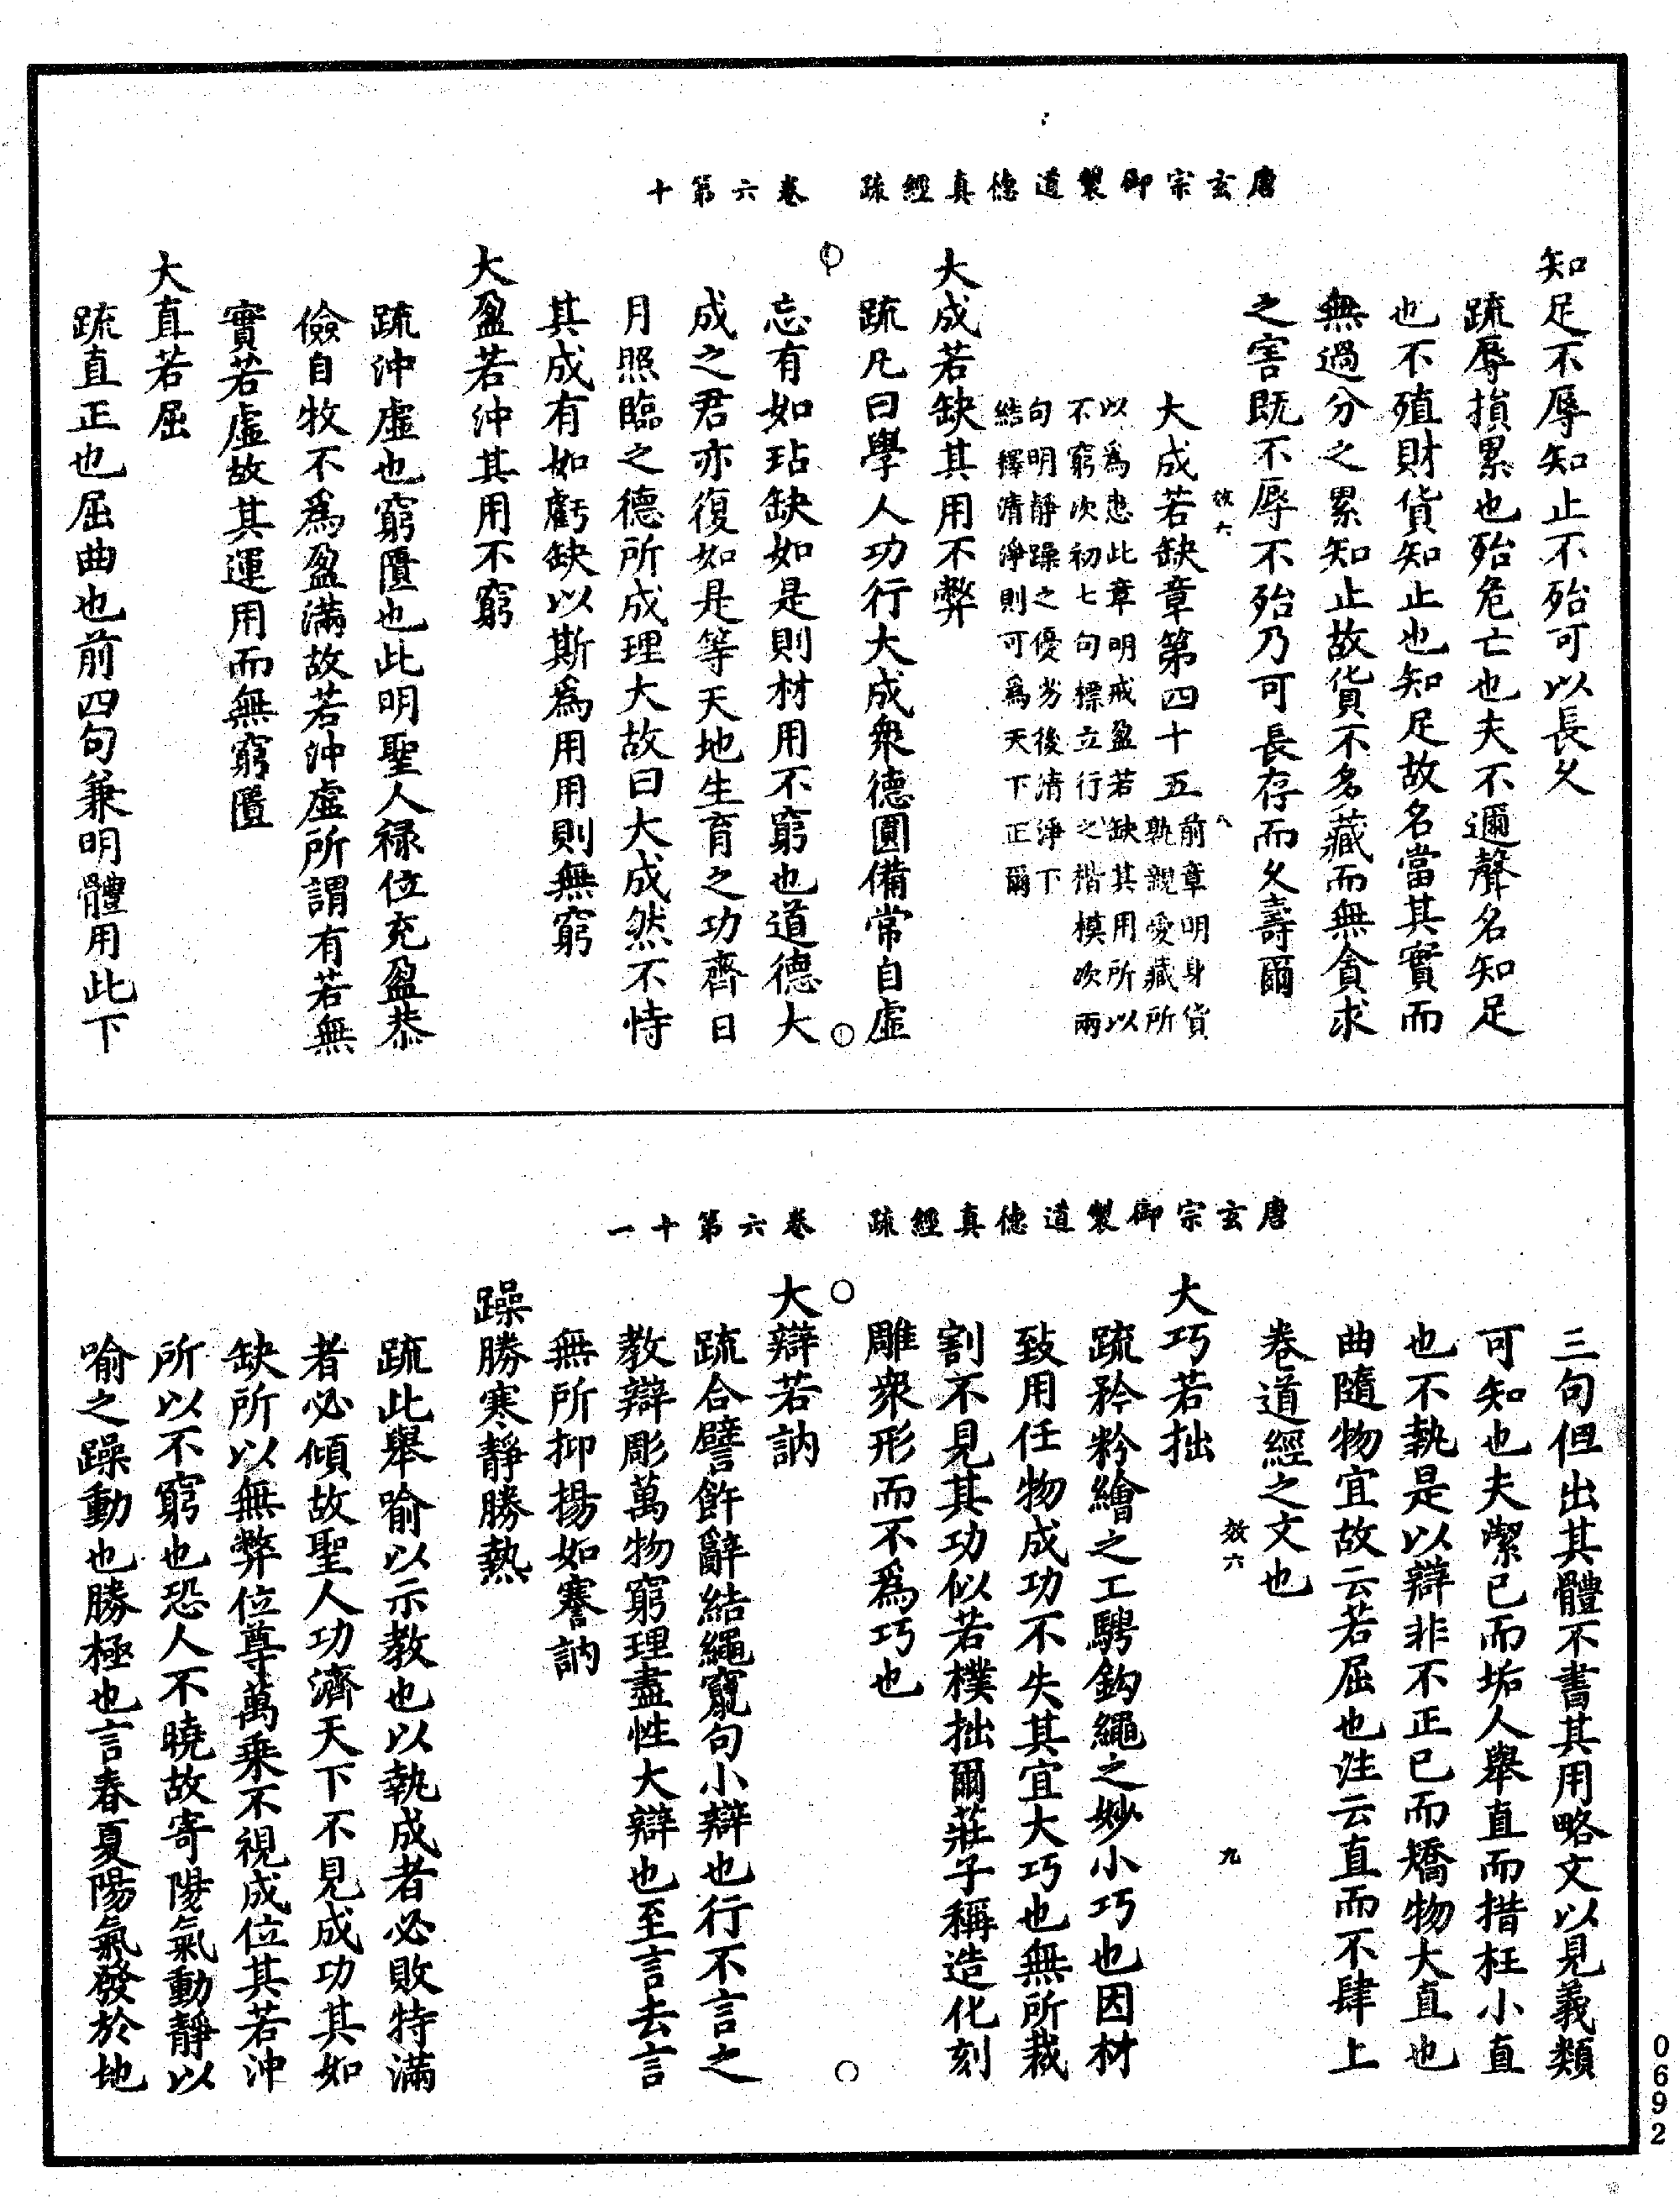 唐玄宗御製道德真經疏　卷六第十
知足不辱知止不殆可以長久
疏辱損累也殆危亡也夫不邇聲名知足
也不殖財貨知止也知足故名當其實而
無過分之累知止故貨不多藏而無貪求
之害既不辱不殆乃可長存而久壽爾
效六　八
大成若缺章第四十五
前章明身貨
孰親愛藏所
以為患此章明戒盈若缺其用所以
不窮次初七句標立行之楷模次兩
句明靜躁之優劣後清淨下
結釋清淨則可為天下正爾
大成若缺其用不弊
疏凡曰學人功行大成衆德圓備常自虛
忘有如玷缺如是則材用不窮也道德大
成之君亦復如是等天地生育之功齊日
月照臨之德所成理大故曰大成然不恃
其成有如虧缺以斯為用用則無窮
大盈若沖其用不窮
疏沖虛也窮匱也此明聖人祿位充盈恭
儉自牧不為盈滿故若沖虛所謂有若無
實若虛故其運用而無窮匱
大直若屈
疏直正也屈曲也前四句兼明體用此下
唐玄宗御製道德真經疏　卷六第十一
三句但出其體不書其用略文以見義類
可知也夫潔已而垢人舉直而措枉小直
也不執是以辯非不正已而矯物大直也
曲隨物宜故云若屈也注云直而不肆上
卷道經之文也
效六　九
大巧若拙
疏矜粉繪之工騁鈎繩之妙小巧也因材
致用任物成功不失其宜大巧也無所裁
割不見其功似若樸拙爾莊子稱造化刻
雕衆形而不為巧也
大辯若訥
疏合譬飾辭結繩竄句小辯也行不言之
教辯彫萬物窮理盡性大辯也至言去言
無所抑揚如謇訥
躁勝寒靜勝熱
疏此舉喻以示教也以執成者必敗特滿
者必傾故聖人功濟天下不見成功其如
缺所以無弊位尊萬乘不視成位其若沖
所以不窮也恐人不曉故寄陽氣動靜以
喻之躁動也勝極也言春夏陽氣發於地
0692